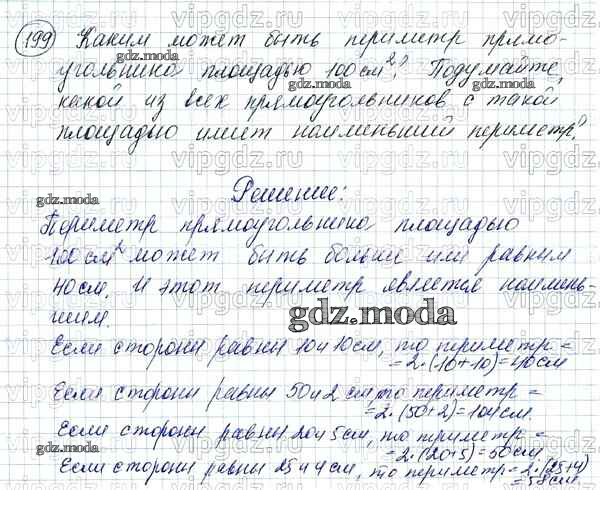 199 Каким может быть периметр прямо-
угольника площадью 100 см²? Подумайте,
какой из всех прямоугольников с такой
площадью имеет наименьший периметр?
Решение:
Периметр прямоугольника площадью
100 см² может быть больше или равным
40 см. И этот периметр является наимень-
шим.
Если стороны равны 10 и 10 см, то периметр =
= 2·(10+10) = 40 см
Если стороны равны 50 и 2 см, то периметр =
= 2·(50+2) = 104 см.
Если стороны равны 20 и 5 см, то периметр =
= 2·(20+5) = 50 см.
Если стороны равны 25 и 4 см, то периметр = 2·(25+4)
= 58 см
gdz.moda
gdz.moda
gdz.moda
gdz.moda
vipgdz.ru